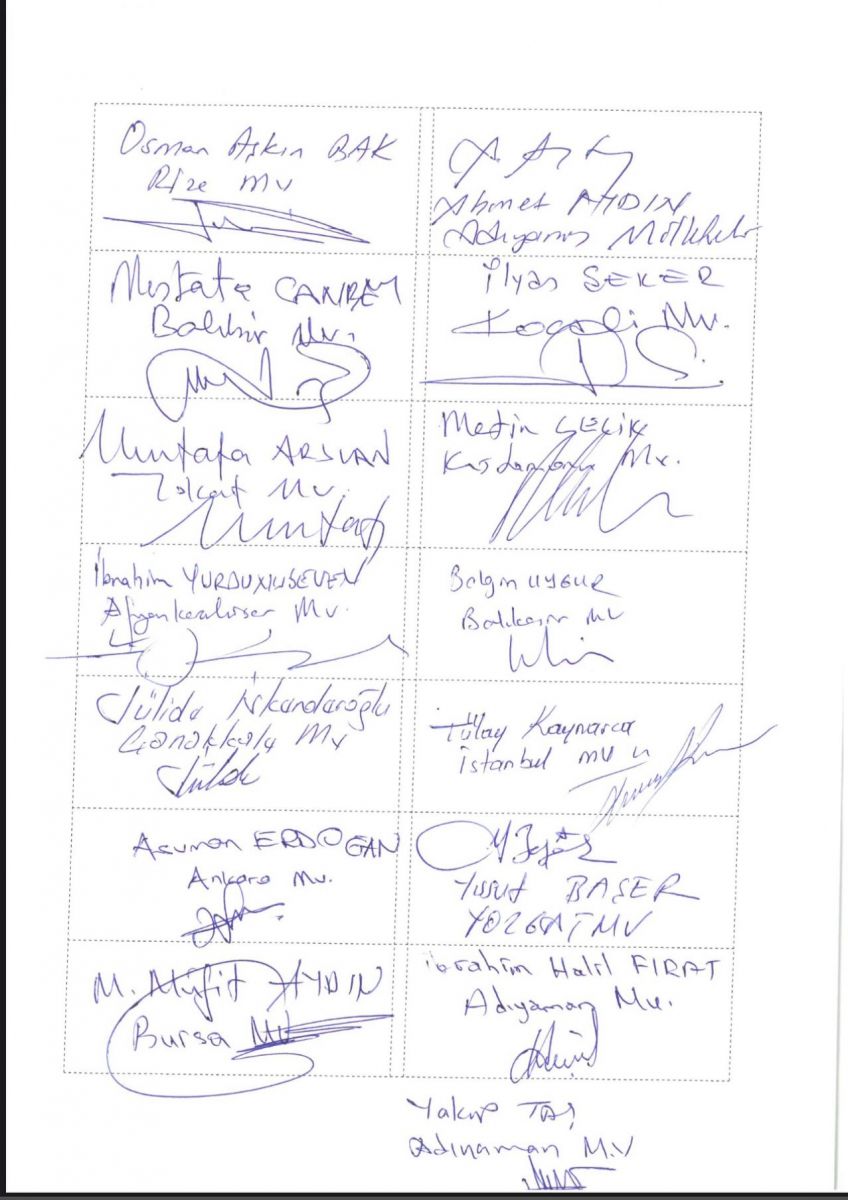 Osman Aşkın BAK
Rize mv
Ahmet AYDIN
Adıyaman Milletvekili
Mustafa CANBEY
Balıkesir Mv.
İlyas ŞEKER
Kocaeli Mv.
Mustafa ARSLAN
Tokat Mv.
Mustafa
Metin ÇELİK
Kastamonu Mv.
İbrahim YURDUNUSEVEN
Afyonkarahisar Mv.
Belgin UYGUR
Balıkesir mv
Jülide İskenderoğlu
Çanakkale Mv
Jülide
Tülay Kaynarca
istanbul mv
Asuman ERDOGAN
Ankara Mv.
Yusuf BAŞER
YOZGAT MV
M. Müfit AYDIN
Bursa MV
ibrahim Halil FIRAT
Adıyaman Mv.
Yakup TAŞ
Adıyaman M.V